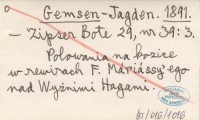 Gemsen-Jagden. 1891.
– Zipser Bote 29, nr 34: 3.
Polowania na kozice
w rewirach F. Máriássy'ego
nad Wyżnimi Hagami.
bj/016/1016